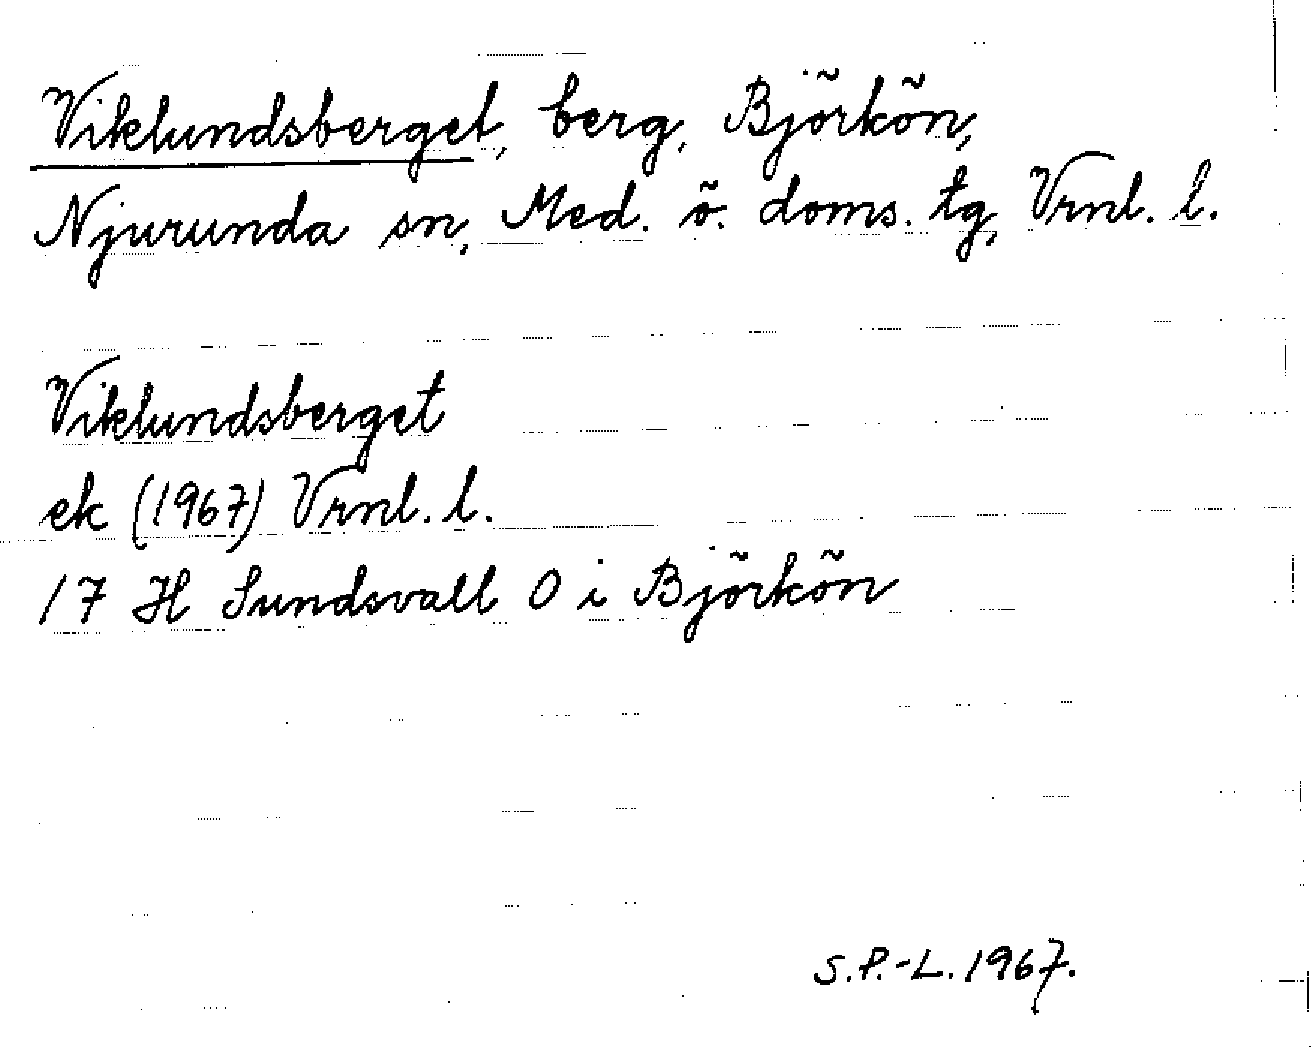 Viklundsberget, berg, Björkön,
Njurunda sn, Med. ö. doms. tg, Vrnl. l.
Viklundsberget
ek (1967) Vrnl. l.
17 H Sundsvall O i Björkön
S.P.-L. 1967.